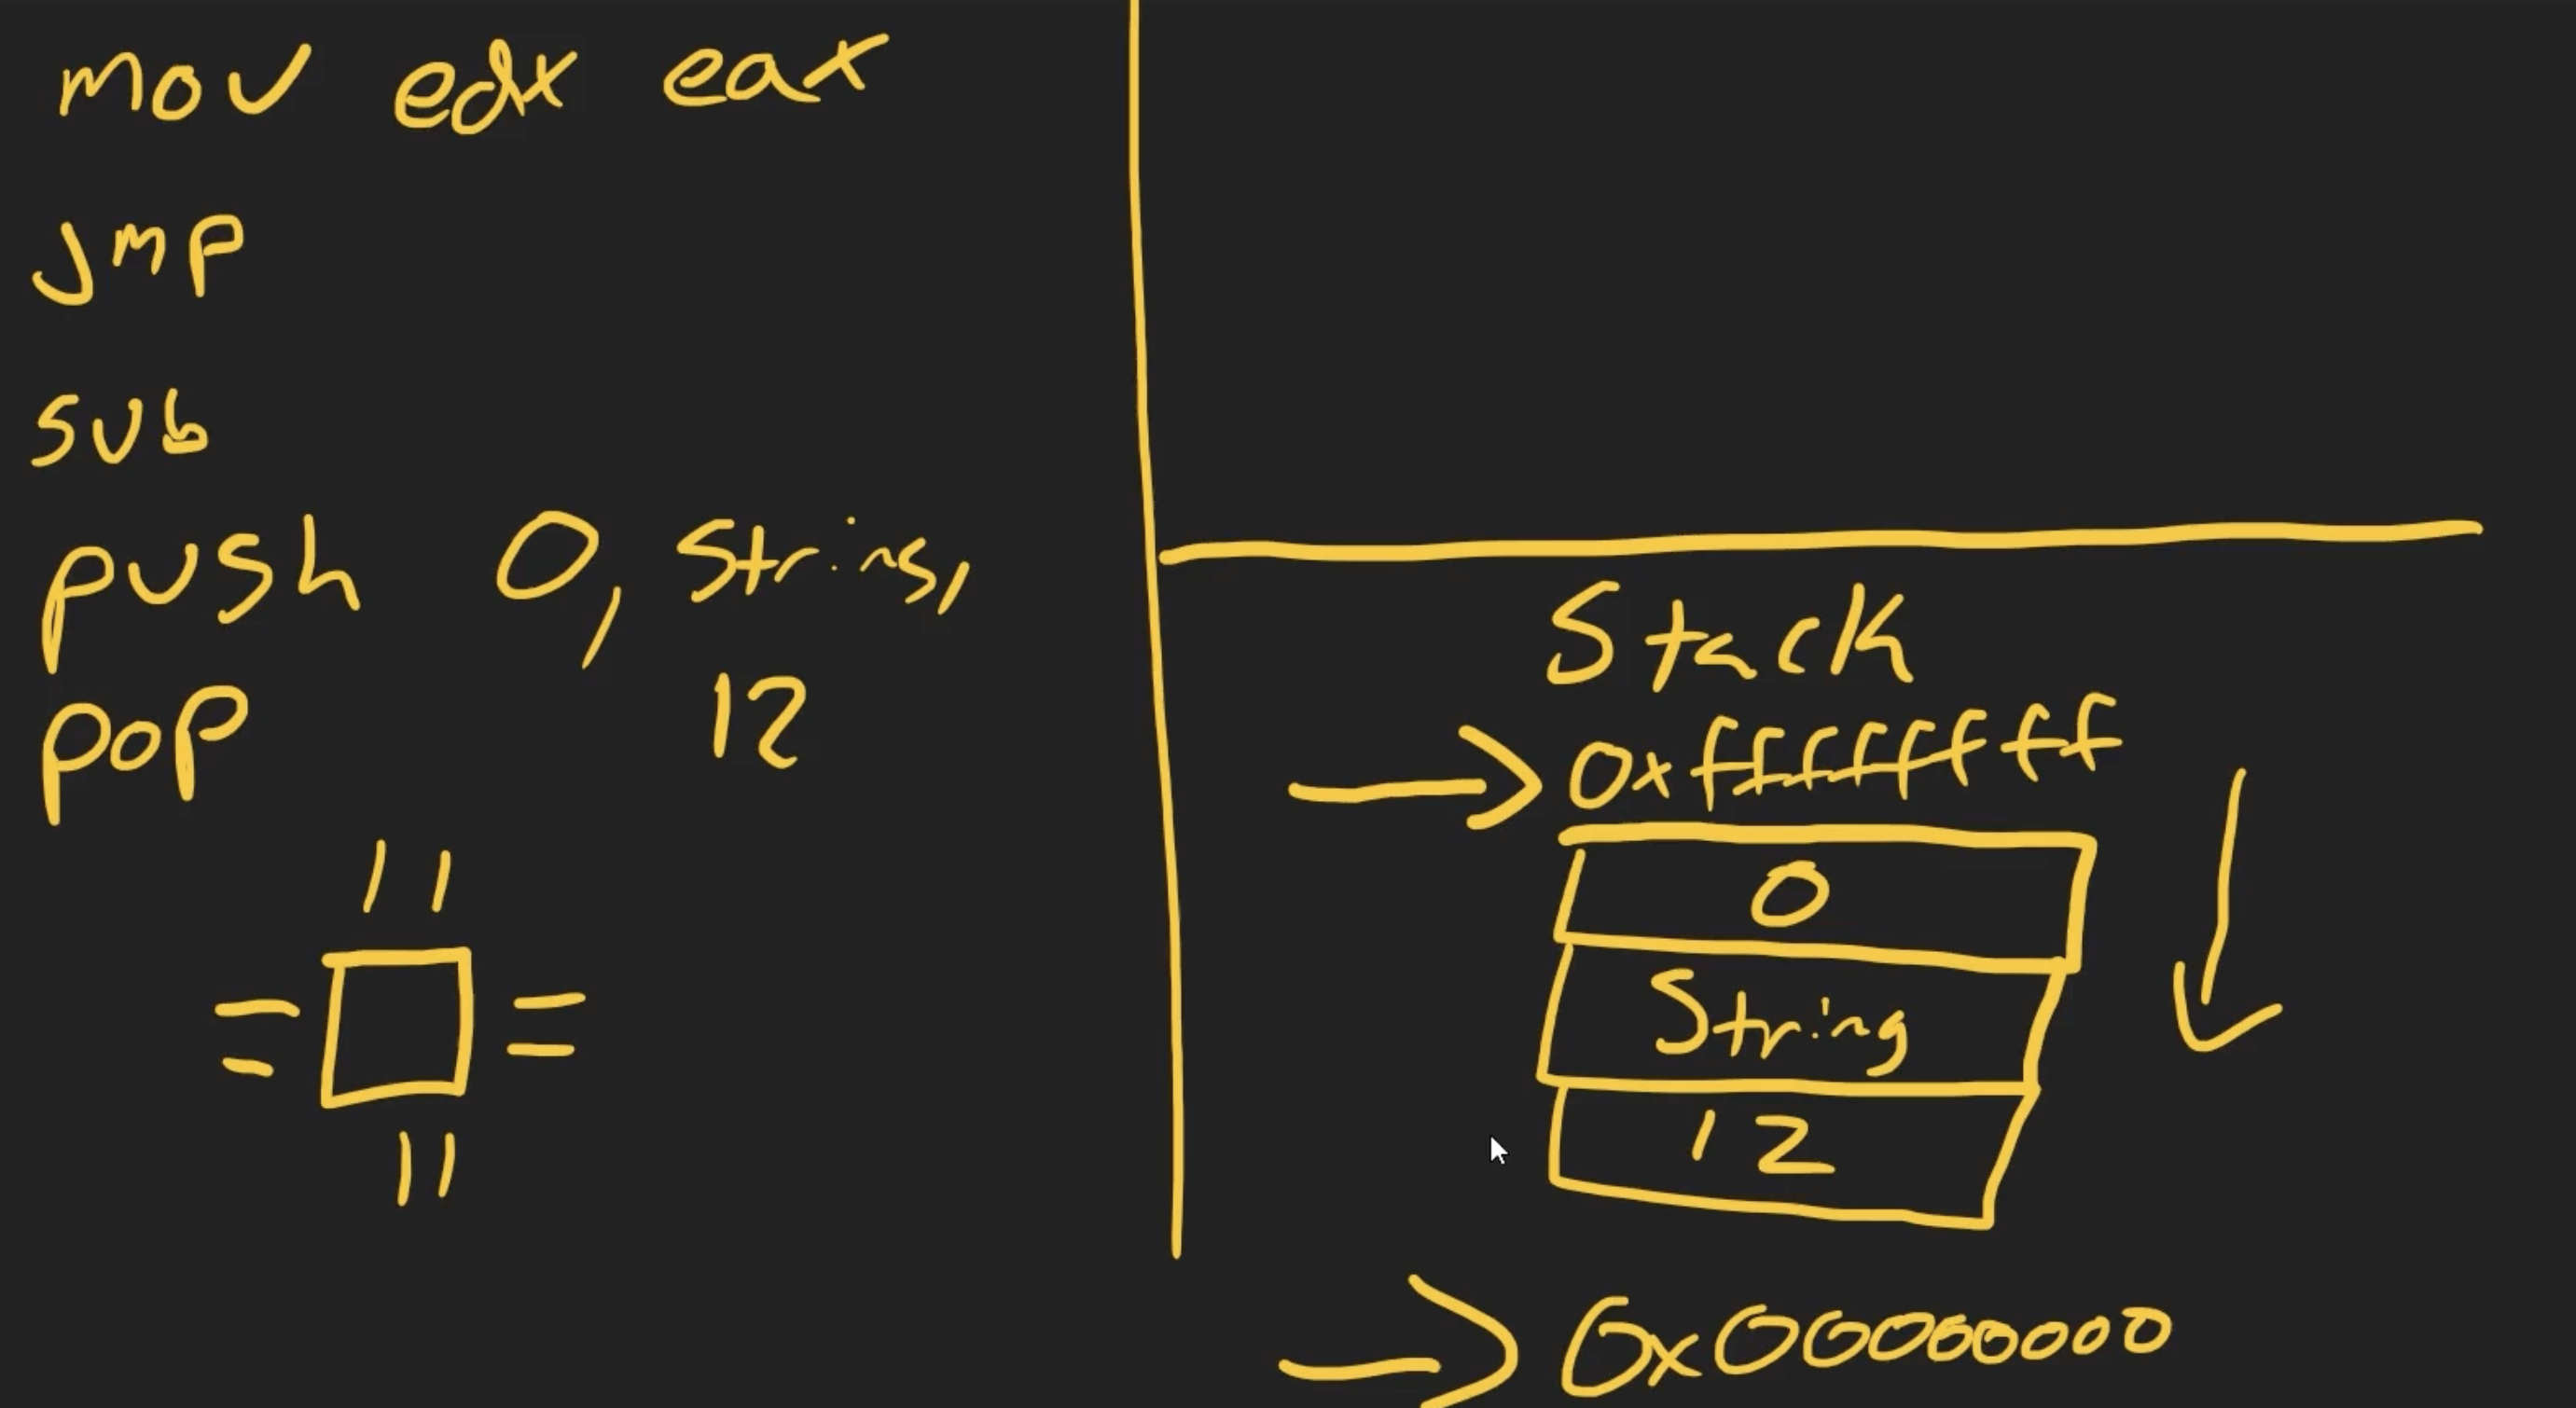 mov edx eax
jmp
sub
push 0, string,
12
pop
Stack
0xffffffff
0
String
12
0x00000000